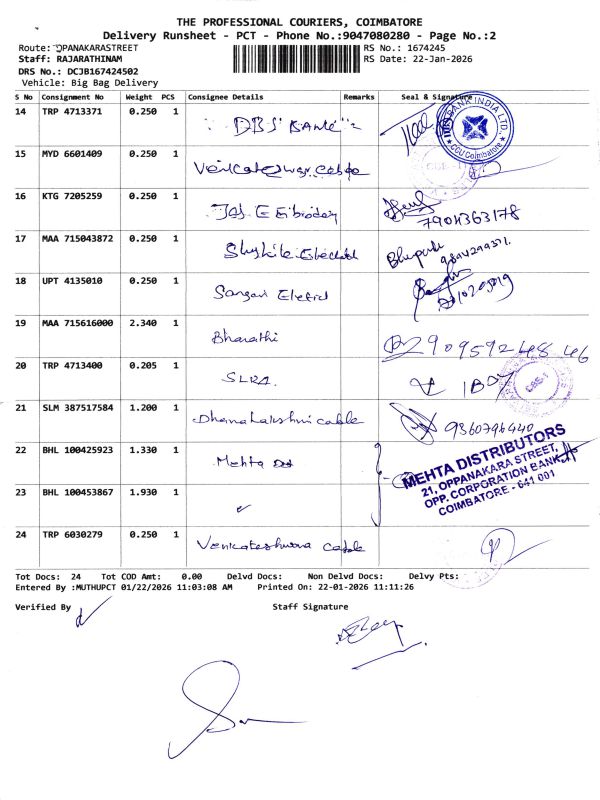 THE PROFESSIONAL COURIERS, COIMBATORE
Delivery Runsheet - PCT - Phone No.:9047080280 - Page No.:2
Route: OPANAKARASTREET
Staff: RAJARATHINAM
DRS No.: DCJB167424502
Vehicle: Big Bag Delivery
RS No.: 1674245
RS Date: 22-Jan-2026
S No Consignment No Weight PCS Consignee Details Remarks Seal & Signature
14 TRP 4713371 0.250 1 DBS Bank
BANK INDIA LTD.
CGU Coimbatore
15 MYD 6601409 0.250 1 Venkateswar Cable
16 KTG 7205259 0.250 1
7904363178
17 MAA 715043872 0.250 1
18 UPT 4135010 0.250 1
19 MAA 715616000 2.340 1 Bharathi 9095924846
20 TRP 4713400 0.205 1
21 SLM 387517584 1.200 1 Dhanalakshmi cable 9360796440
22 BHL 100425923 1.330 1 Mehta
MEHTA DISTRIBUTORS
21, OPPANAKARA STREET,
OPP. CORPORATION BANK
COIMBATORE - 641 001
23 BHL 100453867 1.930 1
24 TRP 6030279 0.250 1 Venkateshwara Cable
Tot Docs: 24 Tot COD Amt: 0.00 Delvd Docs: Non Delvd Docs: Delvy Pts:
Entered By :MUTHUPCT 01/22/2026 11:03:08 AM Printed On: 22-01-2026 11:11:26
Verified By Staff Signature